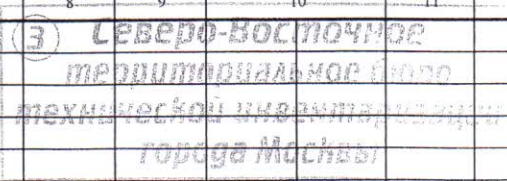 8 9 10 11
3 Северо-Восточное
территориальное бюро
технической инвентаризации
города Москвы